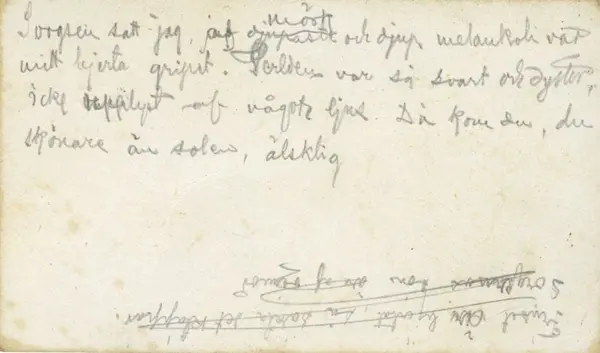 mörk
Sorgsen satt jag, af djupaste och djup melankoli var
mitt hjerta gripet. Verlden var så svart och dyster,
icke upplyst af något ljus. Då kom du, du
skönare än solen, älsklig
hjertat, sakta det klappar.
ton af